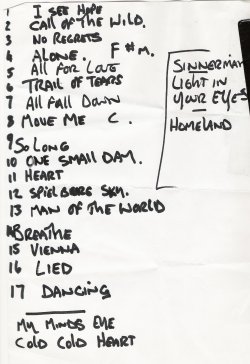 1 I SEE HOPE
2 CALL OF THE WILD.
3 NO REGRETS
4 ALONE. F#M.
5 ALL FOR LOVE
6 TRAIL OF TEARS
7 ALL FALL DOWN
8 MOVE ME C.
9 SO LONG
10 ONE SMALL DAY.
11 HEART
12 SPIELBERG SKY.
13 MAN OF THE WORLD
14 BREATHE
15 VIENNA
16 LIED
17 DANCING
MY MINDS EYE
COLD COLD HEART
SINNERMAN
LIGHT IN
YOUR EYES
HOMELAND